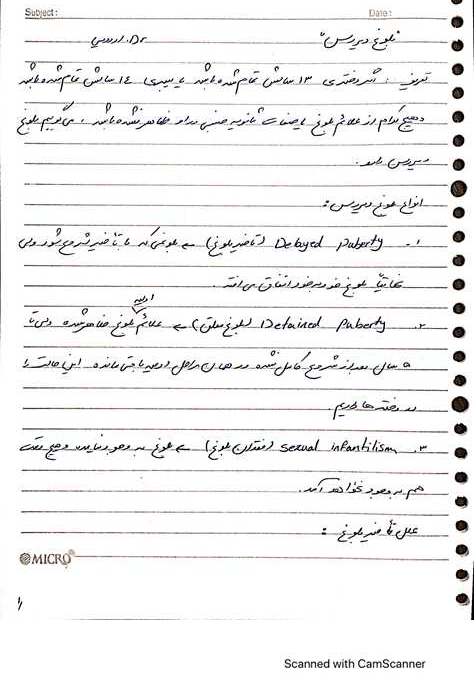 Subject: Date:
"بلوغ دیررس" Dr.
تعریف: اگر دختری ۱۳ سالش تمام شده باشد یا پسری ۱۴ سالش تمام شده باشد
و هیچ کدام از علائم بلوغ یا صفات ثانویه جنسی در او ظاهر نشده باشد، می‌گوییم بلوغ
دیررس دارد.
انواع بلوغ دیررس:
۱. Delayed puberty (تاخیر بلوغ) ← بلوغی که با تاخیر شروع می‌شود ولی
نهایتاً بلوغ خودبه‌خود اتفاق می‌افتد.
اولیه
۲. Detained Puberty (بلوغ معلق) ← علائم بلوغ ظاهر شده ولی تا
۵ سال بعد از شروع کامل نشده و در همان مراحل اولیه باقی مانده. این حالت را
در دخترها داریم.
۳. sexual infantilism (فقدان بلوغ) ← بلوغ به وجود نیامده و هیچ وقت
هم به وجود نخواهد آمد.
علل تاخیر بلوغ:
MICRO
۱
Scanned with CamScanner